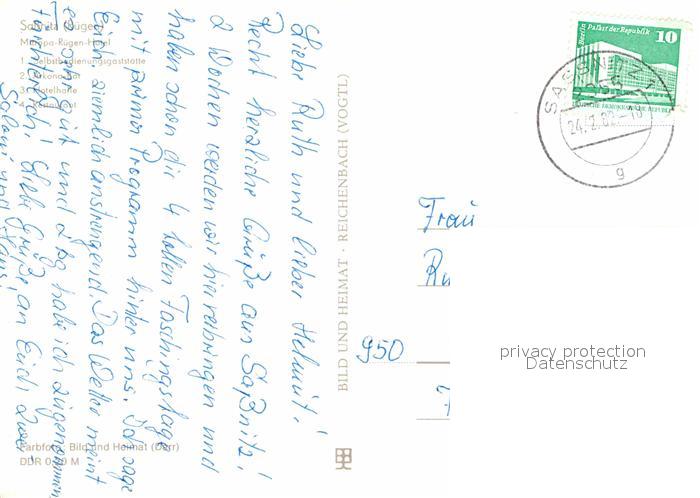 Saßnitz (Rügen)
Mitropa-Rügen-Hotel
1. Selbstbedienungsgaststätte
3. Hotelhalle
4. Restaurant
Liebe Ruth und lieber Helmut!
Recht herzliche Grüße aus Saßnitz!
2 Wochen werden wir hier verbringen und
haben schon die 4 tollen Faschingstage
mit prima Programm hinter uns. Ich sage
Euch, ziemlich anstrengend. Das Wetter meint
es gut und 2 kg habe ich zugenommen
Fürchterlich! Liebe Grüße an Euch Zwei
Farbfoto: Bild und Heimat (Darr)
DDR 0,20 M
BILD UND HEIMAT · REICHENBACH (VOGTL)
Berlin Palast der Republik
10
DEUTSCHE DEMOKRATISCHE REPUBLIK
SASSNITZ 1
2355
24.2.82-18
g
Frau
Ru
950
privacy protection
Datenschutz